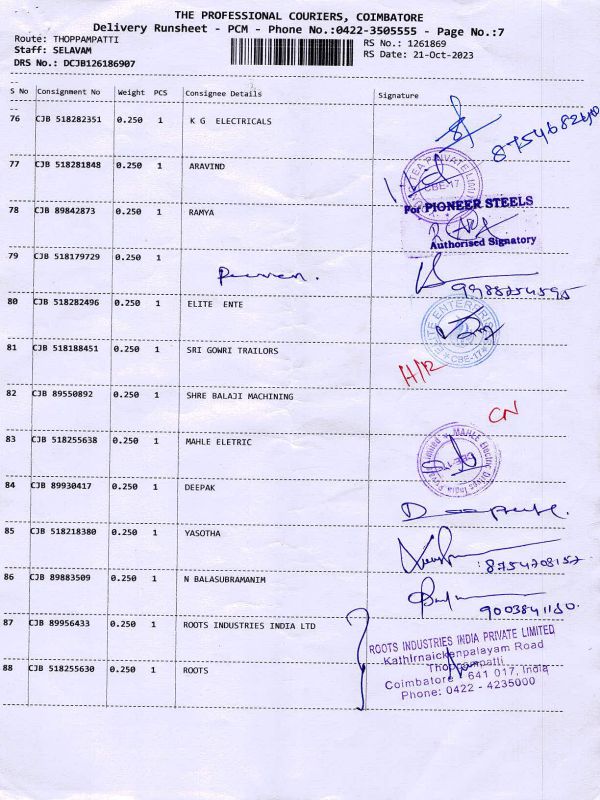 THE PROFESSIONAL COURIERS, COIMBATORE
Delivery Runsheet - PCM - Phone No.:0422-3505555 - Page No.:7
Route: THOPPAMPATTI RS No.: 1261869
Staff: SELAVAM RS Date: 21-Oct-2023
DRS No.: DCJB126186907
S No Consignment No Weight PCS Consignee Details Signature
76 CJB 518282351 0.250 1 K G ELECTRICALS
77 CJB 518281848 0.250 1 ARAVIND
CBE-17
78 CJB 89842873 0.250 1 RAMYA For PIONEER STEELS
Authorised Signatory
79 CJB 518179729 0.250 1
80 CJB 518282496 0.250 1 ELITE ENTE
CBE-17
81 CJB 518188451 0.250 1 SRI GOWRI TRAILORS
82 CJB 89550892 0.250 1 SHRE BALAJI MACHINING
CN
83 CJB 518255638 0.250 1 MAHLE ELETRIC
84 CJB 89930417 0.250 1 DEEPAK
85 CJB 518218380 0.250 1 YASOTHA
8754708157
86 CJB 89883509 0.250 1 N BALASUBRAMANIM
9003841180.
87 CJB 89956433 0.250 1 ROOTS INDUSTRIES INDIA LTD
ROOTS INDUSTRIES INDIA PRIVATE LIMITED
Kathirnaickenpalayam Road
Thoppampatti
88 CJB 518255630 0.250 1 ROOTS Coimbatore - 641 017, India
Phone: 0422 - 4235000